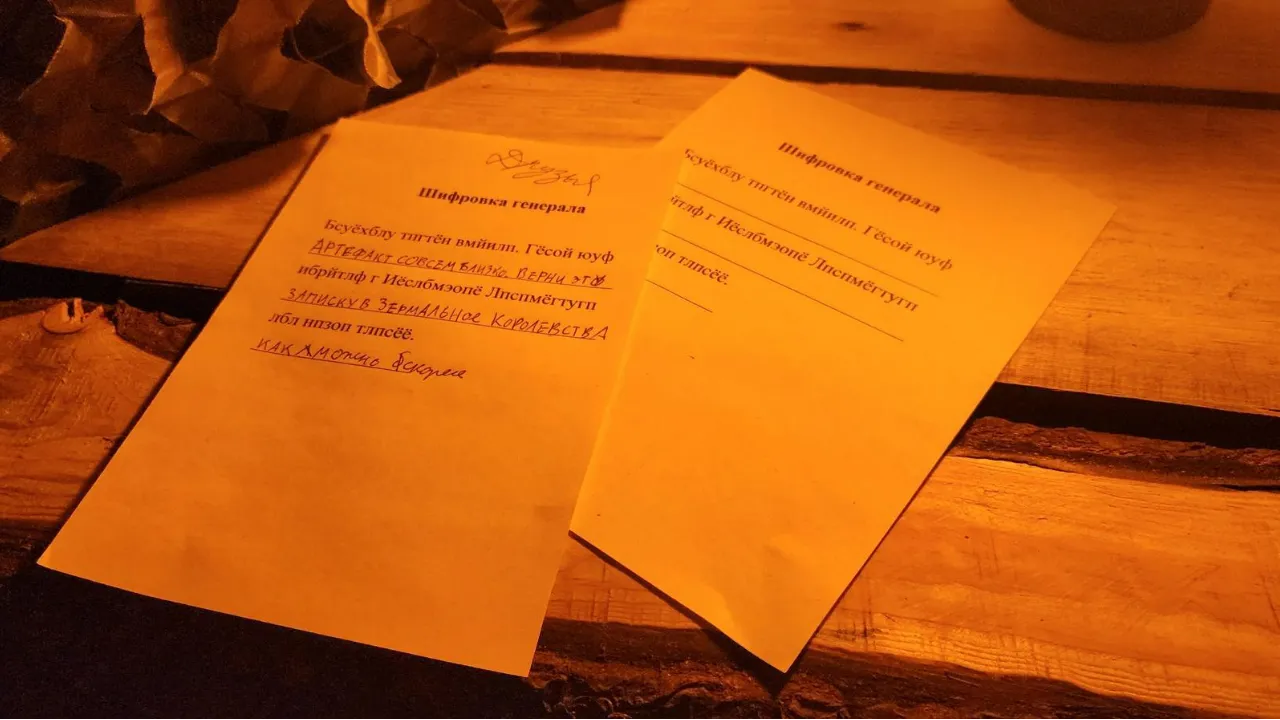 Друзья
Шифровка генерала
Бсуёхблу тпгтён вмйилп. Гёсой юуф
АРТЕФАКТ СОВСЕМ БЛИЗКО. ВЕРНИ ЭТУ
ибрйтлф г Иёслбмэопё Лпспмёгтугп
ЗАПИСКУ В ЗЕРМАЛЬНОЕ КОРОЛЕВСТВА
лбл нпзоп тлпсёё.
КАК МОЖНО скорее
Шифровка генерала
Бсуёхблу тпгтён вмйилп. Гёсой юуф
йтлф г Иёслбмэопё Лпспмёгтугп
оп тлпсёё.